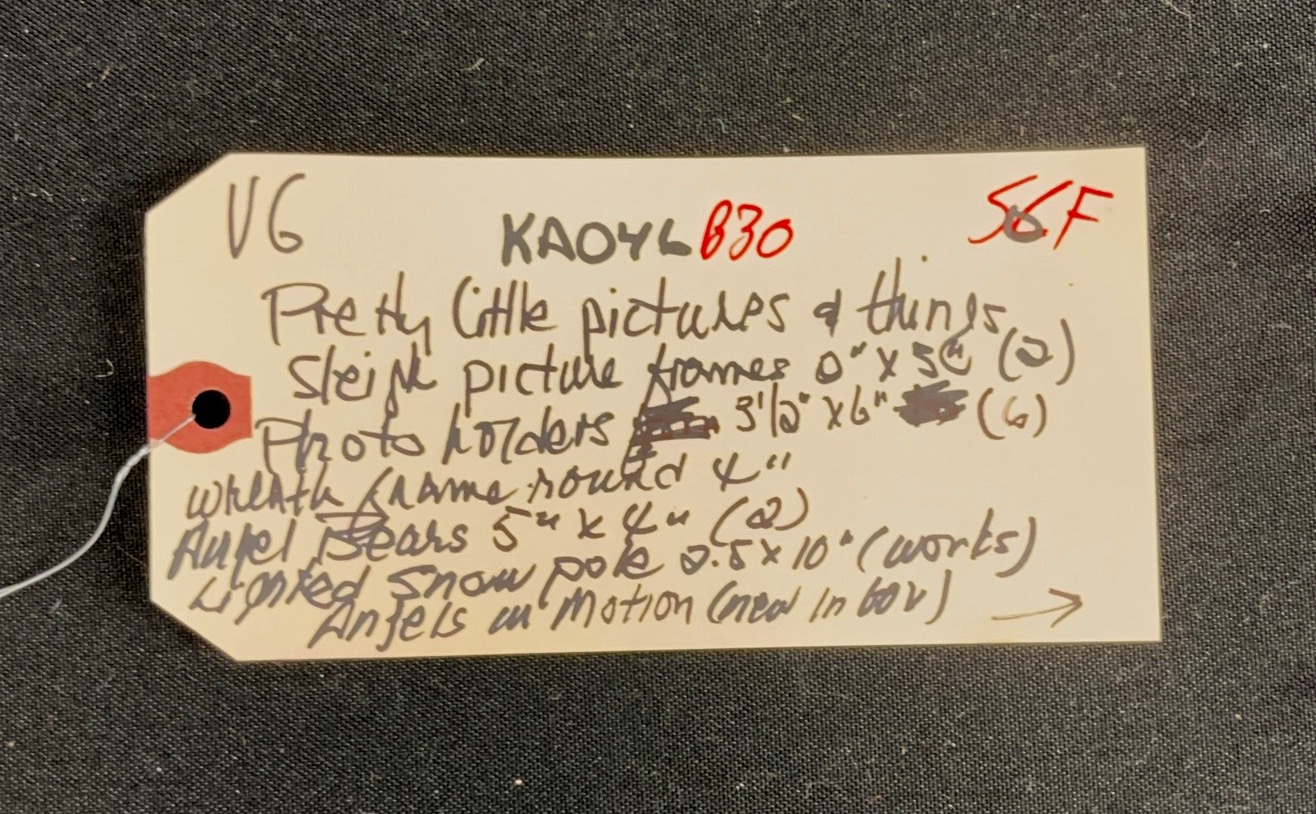 VG KA046 B30
Pretty little pictures & things
Sleigh picture frames x (2)
Photo holders 3 1/2" x 6" (6)
wreath frame round 4"
Angel Bears 5" x 4" (2)
Lighted Snow pole 2.5 x 10" (works)
Angels in Motion (new in box) →